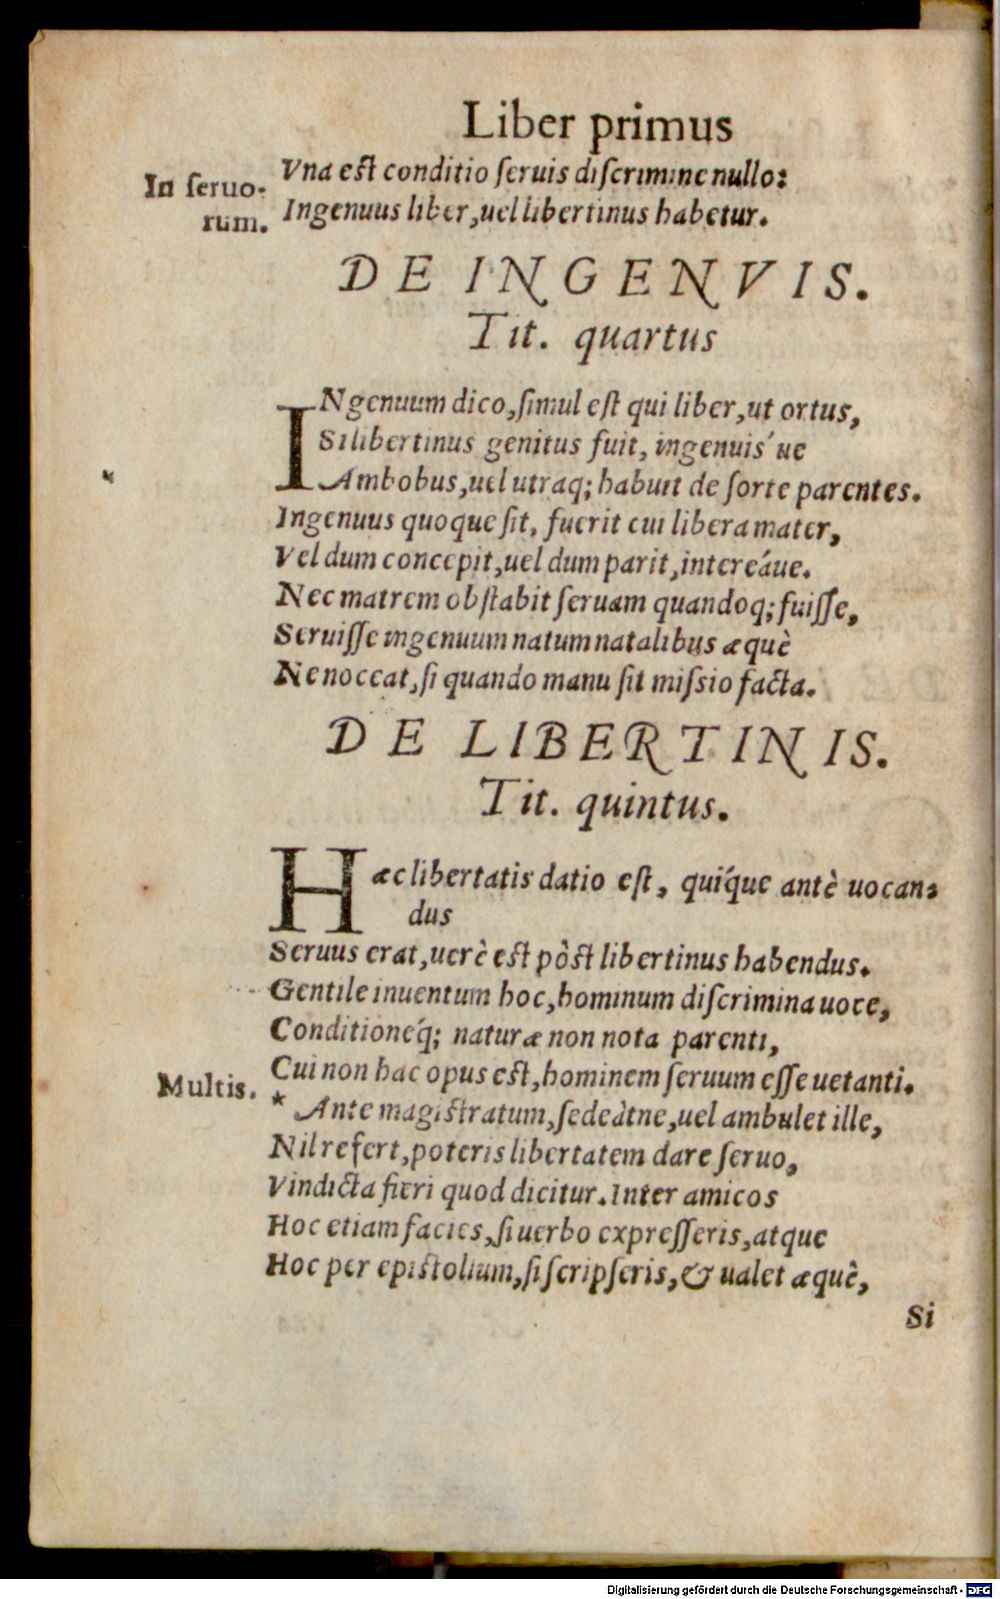 Liber primus
In ſeruo-
rum.
Vna eſt conditio ſeruis diſcrimine nullo:
Ingenuus liber, uel libertinus habetur.
DE INGENVIS.
Tit. quartus
INgenuum dico, ſimul eſt qui liber, ut ortus,
Si libertinus genitus fuit, ingenuis´ue
Ambobus, uel utraq; habuit de ſorte parentes.
Ingenuus quoque ſit, fuerit cui libera mater,
Vel dum concepit, uel dum parit, intereáue.
Nec matrem obſtabit ſeruam quandoq; fuiſſe,
Seruiſſe ingenuum natum natalibus æquè
Ne noceat, ſi quando manu ſit miſsio facta.
DE LIBERTINIS.
Tit. quintus.
Hæc libertatis datio eſt, quíque antè uocan-
dus
Seruus erat, uerè eſt pòſt libertinus habendus.
Gentile inuentum hoc, hominum diſcrimina uoce,
Conditioneq́; naturæ non nota parenti,
Cui non hac opus eſt, hominem ſeruum eſſe uetanti.
Multis.
* Ante magiſtratum, ſedeàtne, uel ambulet ille,
Nil refert, poteris libertatem dare ſeruo,
Vindicta fieri quod dicitur. Inter amicos
Hoc etiam facies, ſi uerbo expreſſeris, atque
Hoc per epiſtolium, ſi ſcripſeris, & ualet æquè,
Si
Digitalisierung gefördert durch die Deutsche Forschungsgemeinschaft - DFG